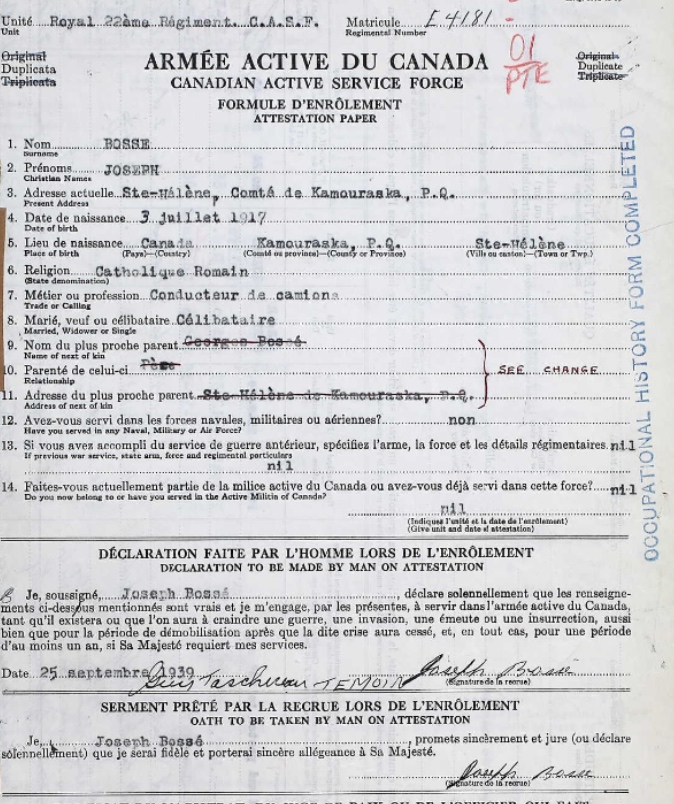 Unité Royal 22ème Régiment. C.A.S.F. Matricule E 4181
Unit Regimental Number
Original
Duplicata
Triplicata
ARMÉE ACTIVE DU CANADA
CANADIAN ACTIVE SERVICE FORCE
01
PTE
Original
Duplicate
Triplicate
FORMULE D'ENRÔLEMENT
ATTESTATION PAPER
1. Nom BOSSE
Surname
2. Prénoms JOSEPH
Christian Names
3. Adresse actuelle Ste-Hélène, Comté de Kamouraska, P.Q.
Present Address
4. Date de naissance 3 juillet 1917
Date of birth
5. Lieu de naissance Canada Kamouraska, P.Q. Ste-Hélène
Place of birth (Pays)—(Country) (Comté ou province)—(County or Province) (Ville ou canton)—(Town or Twp.)
6. Religion Catholique Romain
(State denomination)
7. Métier ou profession Conducteur de camions
Trade or Calling
8. Marié, veuf ou célibataire Célibataire
Married, Widower or Single
9. Nom du plus proche parent Georges Bossé
Name of next of kin
10. Parenté de celui-ci Père
Relationship
SEE CHANGE
11. Adresse du plus proche parent Ste-Hélène de Kamouraska, P.Q.
Address of next of kin
12. Avez-vous servi dans les forces navales, militaires ou aériennes? non
Have you served in any Naval, Military or Air Force?
13. Si vous avez accompli du service de guerre antérieur, spécifiez l'arme, la force et les détails régimentaires. nil
If previous war service, state arm, force and regimental particulars
nil
14. Faites-vous actuellement partie de la milice active du Canada ou avez-vous déjà servi dans cette force? nil
Do you now belong to or have you served in the Active Militia of Canada?
nil
(Indiquez l'unité et la date de l'enrôlement)
(Give unit and date of attestation)
OCCUPATIONAL HISTORY FORM COMPLETED
DÉCLARATION FAITE PAR L'HOMME LORS DE L'ENRÔLEMENT
DECLARATION TO BE MADE BY MAN ON ATTESTATION
Je, soussigné, Joseph Bossé, déclare solennellement que les renseigne-
ments ci-dessus mentionnés sont vrais et je m'engage, par les présentes, à servir dans l'armée active du Canada,
tant qu'il existera ou que l'on aura à craindre une guerre, une invasion, une émeute ou une insurrection, aussi
bien que pour la période de démobilisation après que la dite crise aura cessé, et, en tout cas, pour une période
d'au moins un an, si Sa Majesté requiert mes services.
Date 25 septembre 1939 Joseph Bossé
Guy Taschereau TEMOIN (Signature de la recrue)
SERMENT PRÊTÉ PAR LA RECRUE LORS DE L'ENRÔLEMENT
OATH TO BE TAKEN BY MAN ON ATTESTATION
Je, Joseph Bossé, promets sincèrement et jure (ou déclare
solennellement) que je serai fidèle et porterai sincère allégeance à Sa Majesté.
Joseph Bosse
(Signature de la recrue)